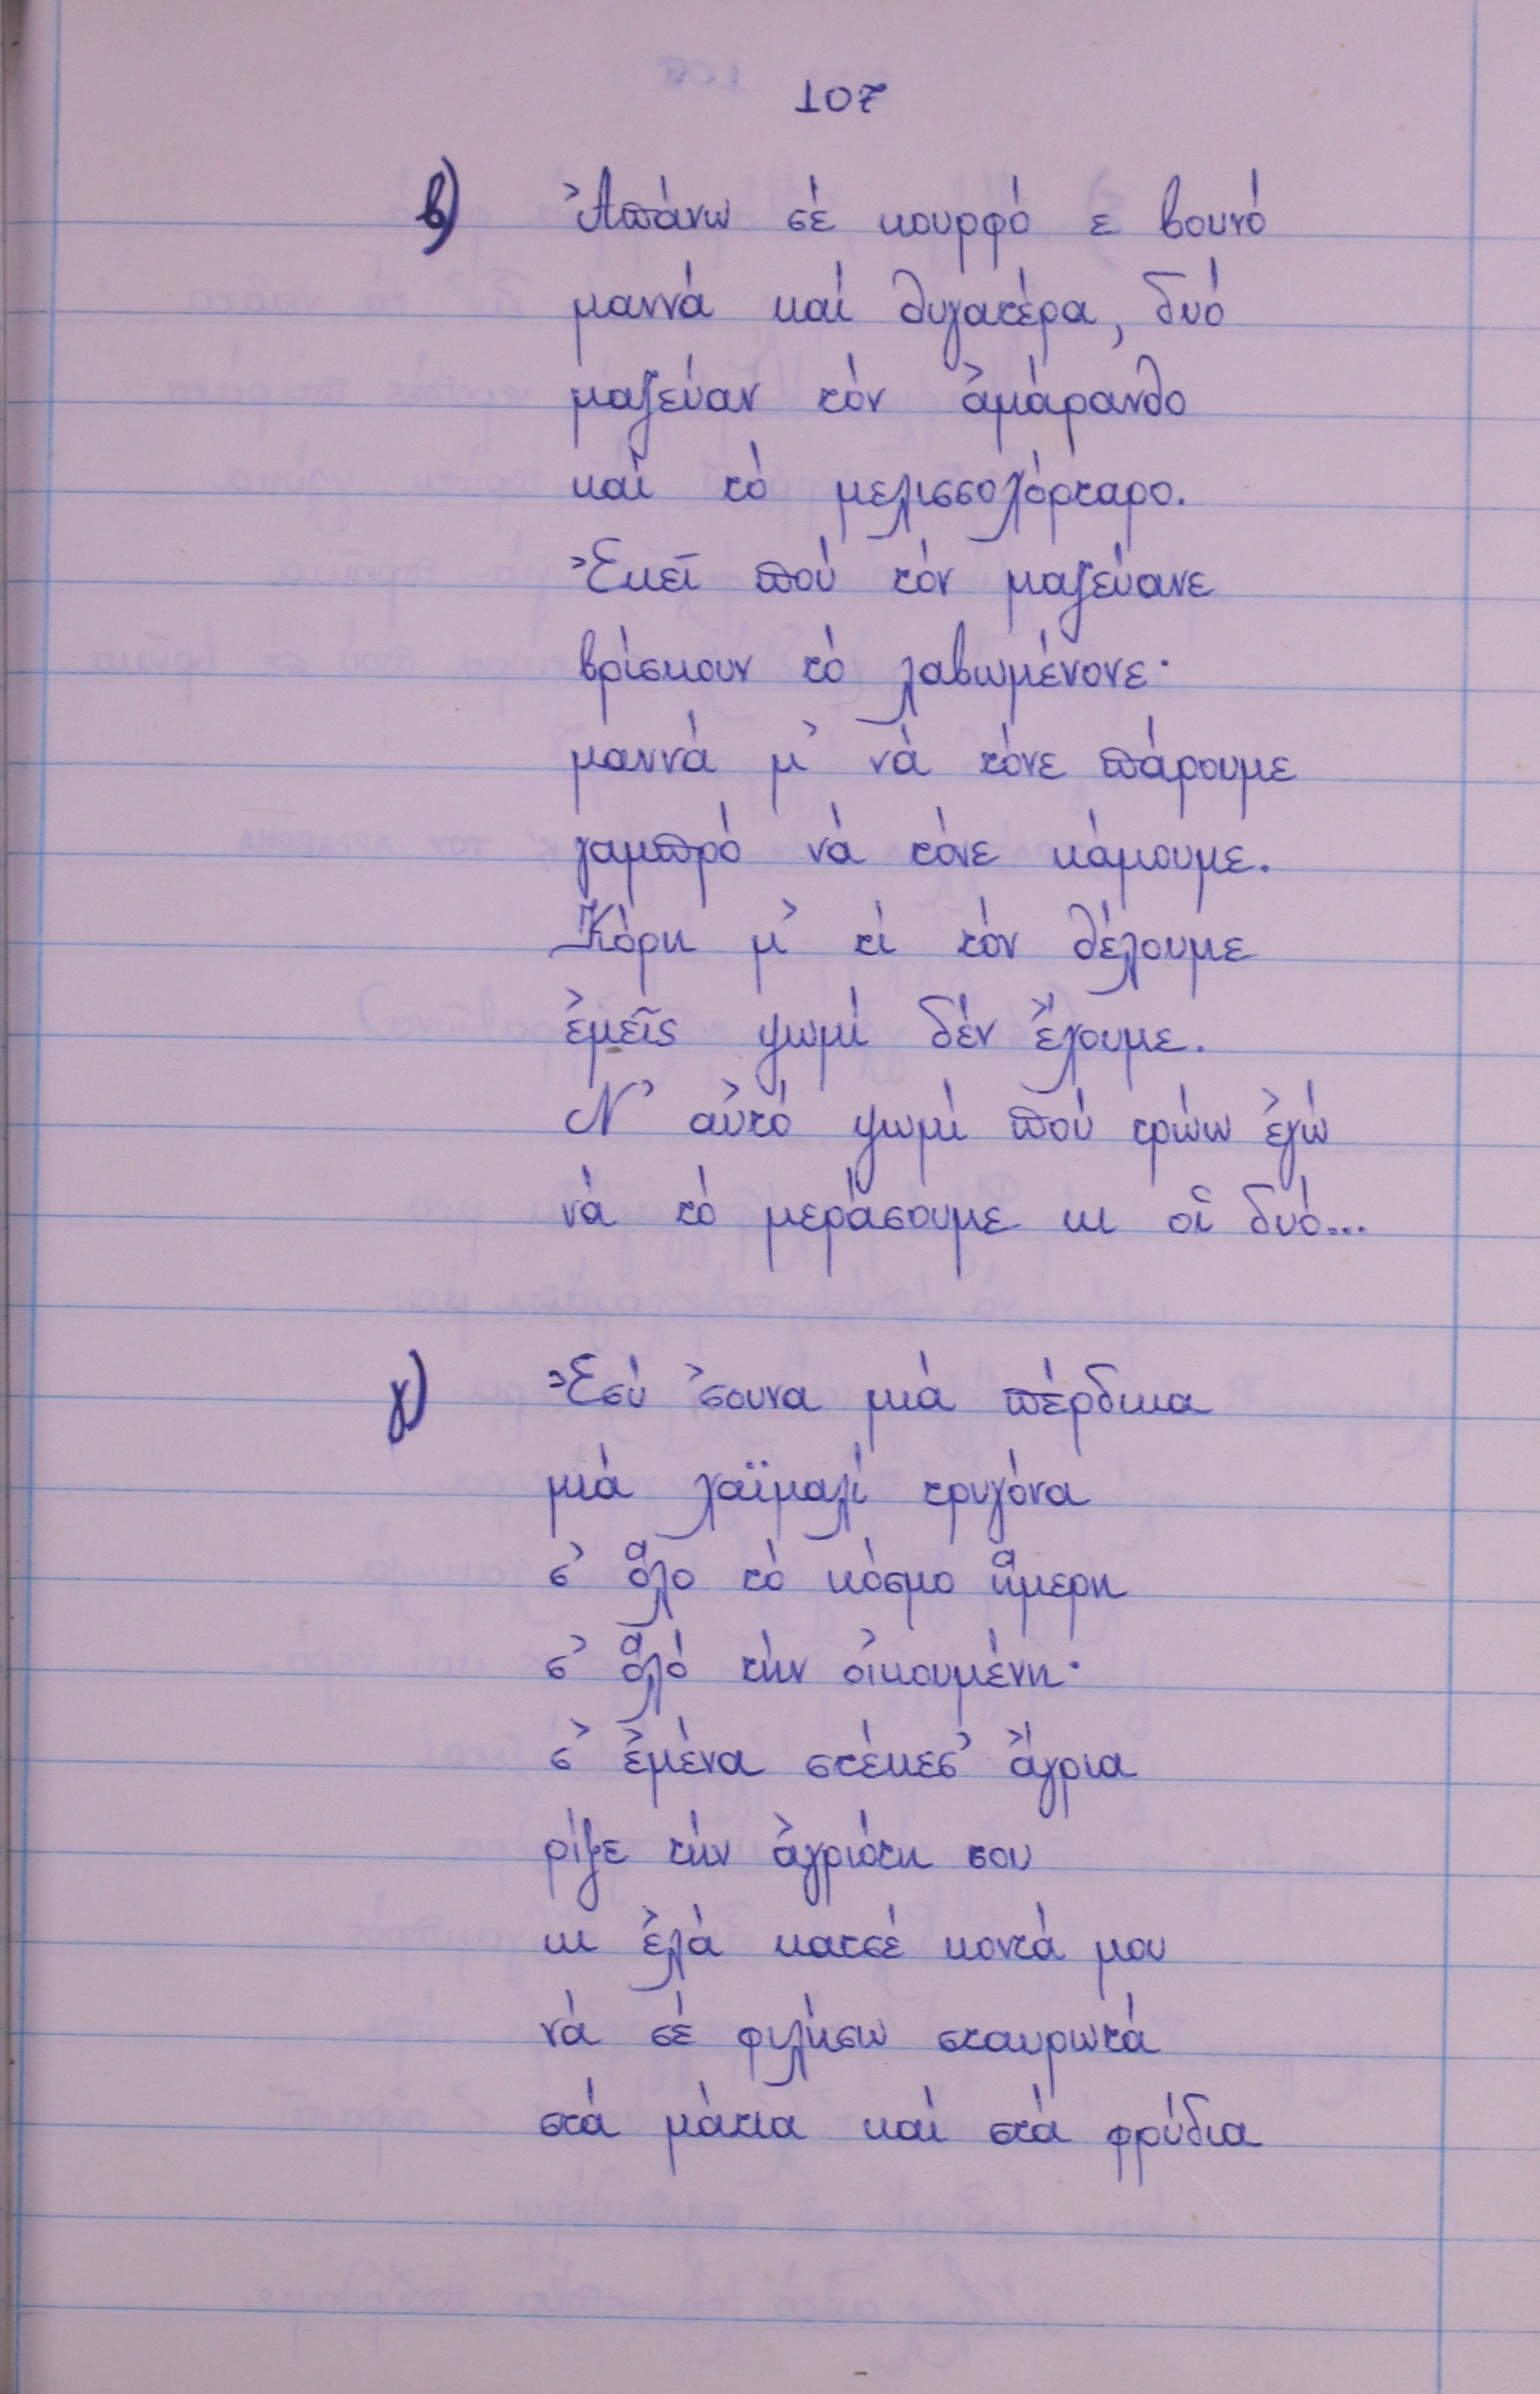 107
β) Ἀπάνω σέ κουρφό ε βουνό
μαννά καί θυγατέρα, δυό
μαζεύαν τόν ἀμάρανθο
καί τό μελισσοχόρταρο.
Ἐκεῖ πού τόν μαζεύανε
βρίσκουν τό λαβωμένονε·
μαννά μ' νά τόνε πάρουμε
γαμπρό νά τόνε κάμουμε.
Κόρη μ' τί τόν θέλουμε
ἐμεῖς ψωμί δέν ἔχουμε.
Ν' αὐτό ψωμί πού τρώω ἐγώ
νά τό μεράσουμε κι οἱ δυό...
γ) Ἐσύ 'σουνα μιά πέρδικα
μιά χαϊμαλί τρυγόνα
σ' ὅλο τό κόσμο ἥμερη
σ' ὅλό τήν οἰκουμένη·
σ' ἐμένα στέκεσ' ἄγρια
ρίξε τήν ἀγριότη σου
κι ἐλά κατσέ κοντά μου
νά σέ φιλήσω σταυρωτά
στά μάτια καί στά φρύδια